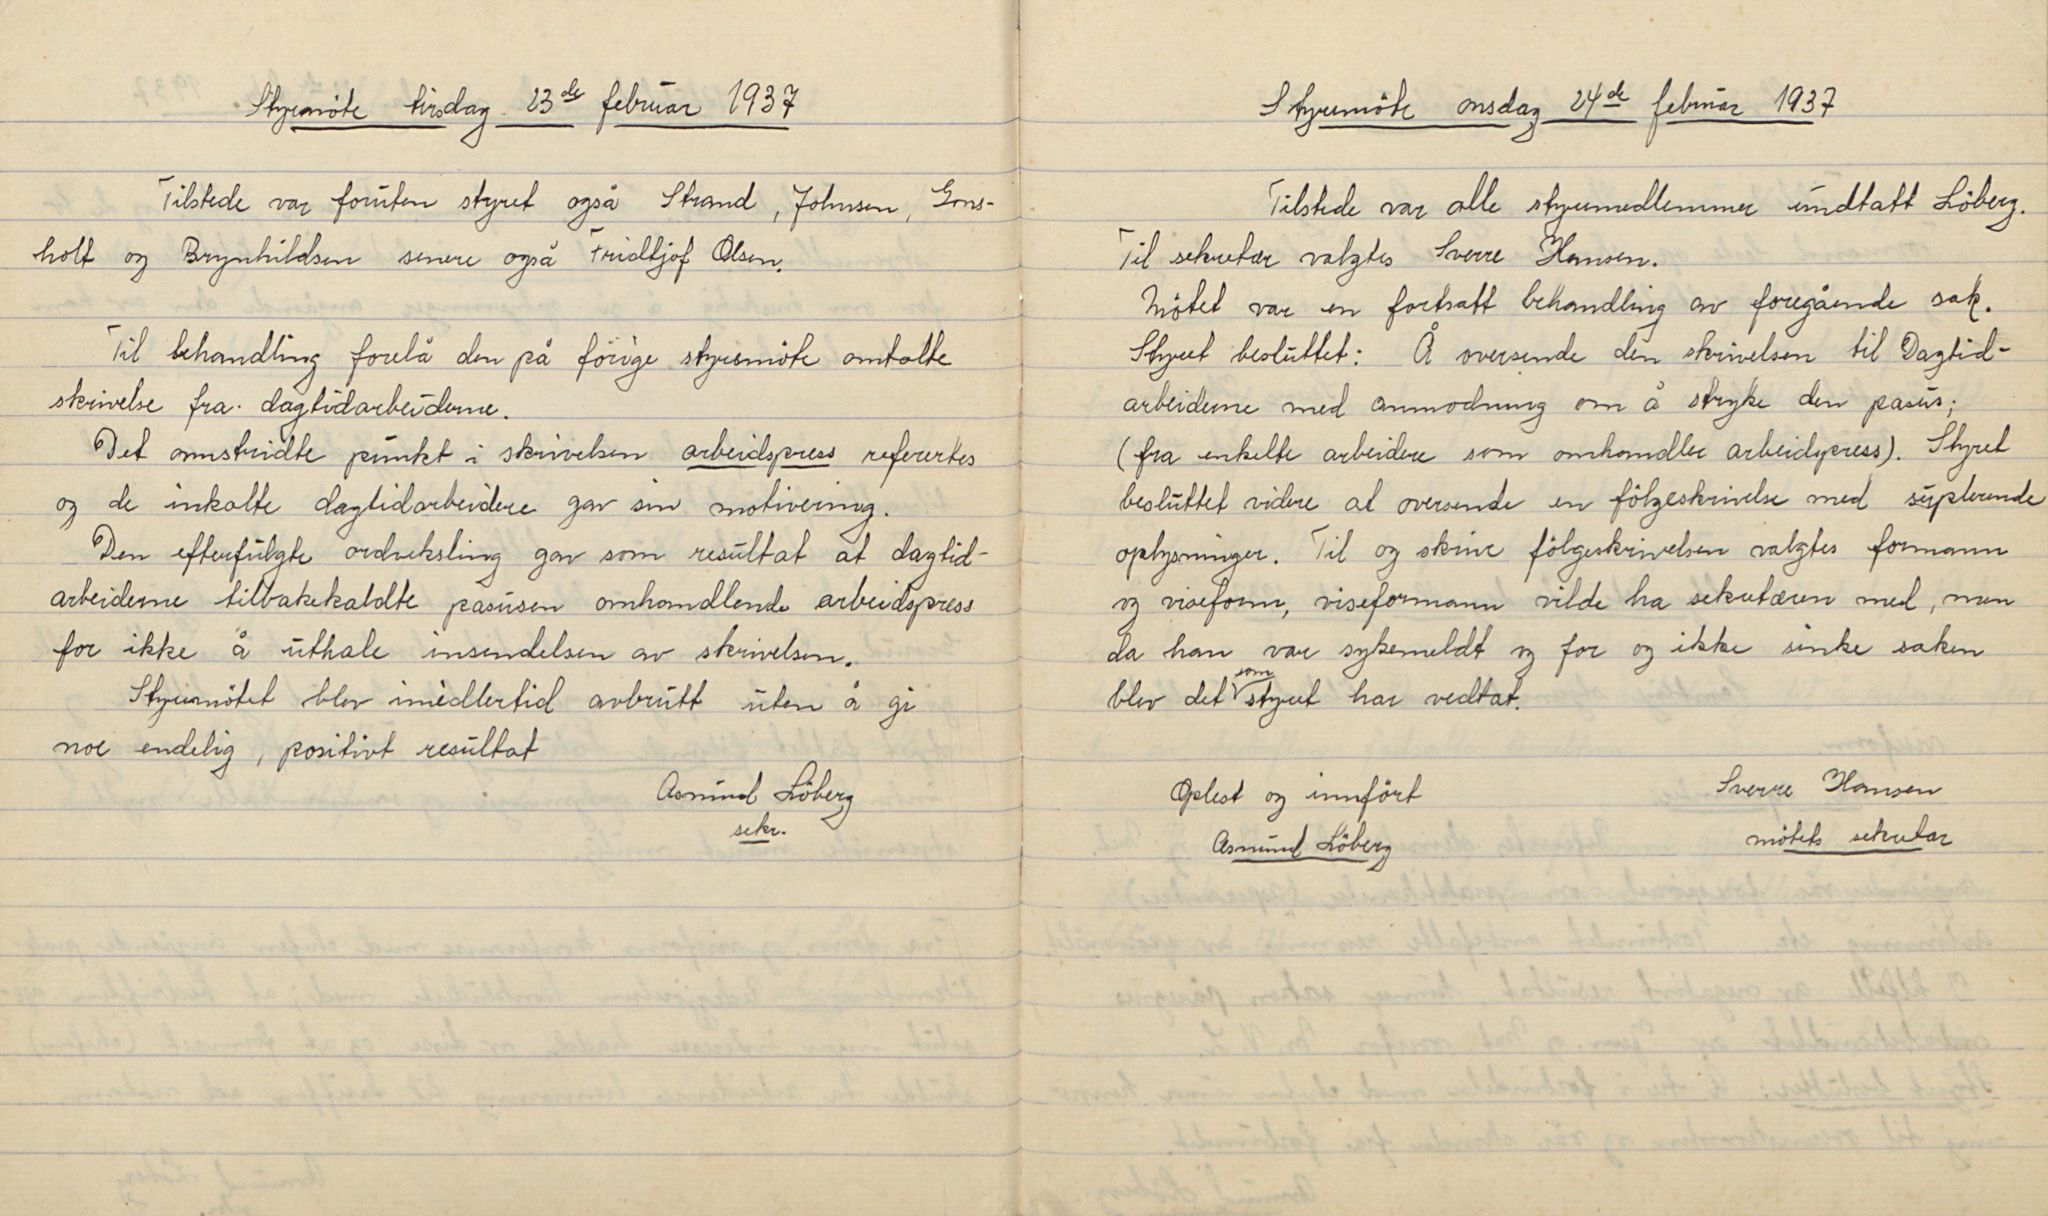 Styremöte tirsdag 23de februar 1937
Tilstede var foruten styret også Strand, Johnsen, Gons-
holt og Brynhildsen senere også Fridtjof Olsen.
Til behandling forelå den på forige styremöte omtalte
skrivelse fra dagtidarbeiderne.
Det omstridte punkt i skrivelsen arbeidspress refertes
og de inkalte dagtidarbeidere gav sin motivering.
Den efterfulgte ordveksling gav som resultat at dagtid-
arbeiderne tilbakekaldte pasusen omhandlende arbeidspress
for ikke å uthale insendelsen av skrivelsen.
Styremötet blev imidlertid avbrutt uten å gi
noe endelig, positivt resultat
Asmund Löberg
sekr.
Styremöte onsdag 24de februar 1937
Tilstede var alle styremedlemmer undtatt Löberg.
Til sekretær valgtes Sverre Hansen.
Mötet var en fortsatt behandling av foregående sak.
Styret besluttet: Å oversende den skrivelsen til Dagtid-
arbeiderne med anmodning om å stryke den pasus;
(fra enkelte arbeidere som omhandler arbeidspress). Styret
besluttet videre at oversende en fölgeskrivelse med suplerende
oplysninger. Til og skrive fölgeskrivelsen valgtes formann
og viseform, viseformann vilde ha sekretæren med, men
da han var sykemeldt og for og ikke sinke saken
blev det som styret har vedtat.
Oplest og innfört
Asmund Löberg
Sverre Hansen
mötets sekretar